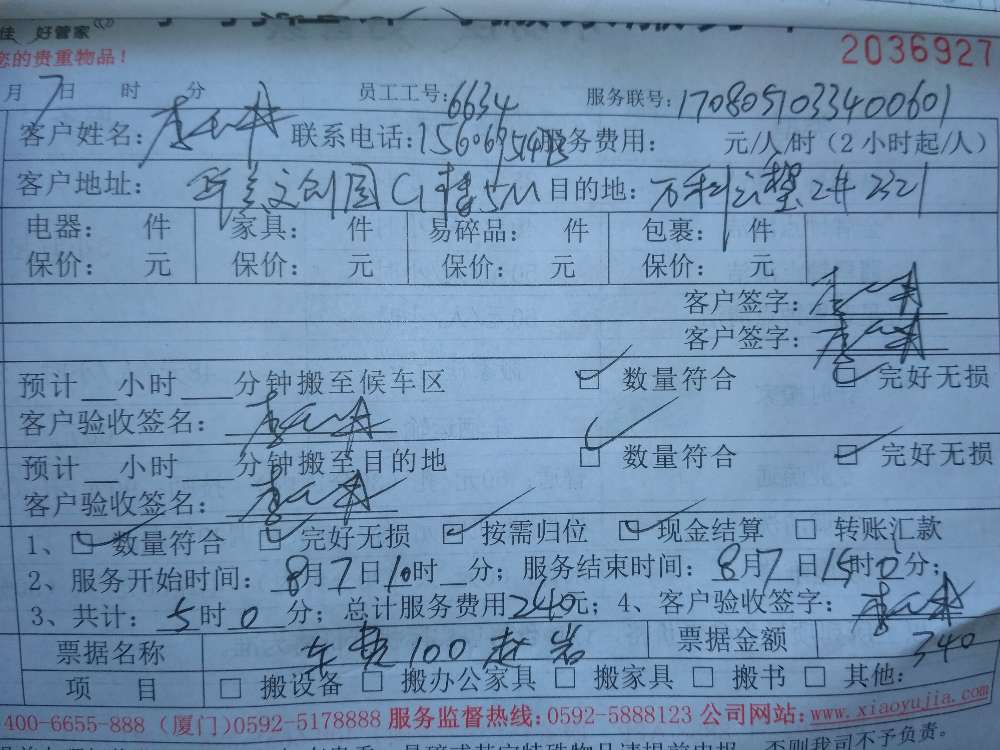 佳 好管家
您的贵重物品！ 2036927
月7日 时 分 员工工号：6634 服务联号：1708051033400601
客户姓名： 联系电话：服务费用： 元/人/时（2小时起/人）
客户地址： 文创园 目的地：万科云 2321
电器： 件 家具： 件 易碎品： 件 包裹： 件
保价： 元 保价： 元 保价： 元 保价： 元
客户签字：
客户签字：
预计__小时____分钟搬至候车区 数量符合 完好无损
客户验收签名：
预计__小时____分钟搬至目的地 数量符合 完好无损
客户验收签名：
1、数量符合 完好无损 按需归位 现金结算 转账汇款
2、服务开始时间：8月7日10时__分；服务结束时间：8月7日15时0分；
3、共计：5时0分；总计服务费用240元；4、客户验收签字：
票据名称 车费100 赵岩 票据金额 340
项 目 搬设备 搬办公家具 搬家具 搬书 其他：
400-6655-888（厦门）0592-5178888 服务监督热线：0592-5888123 公司网站：www.xiaoyujia.com
易碎或其它特殊物品请提前申报，否则我司不予负责。